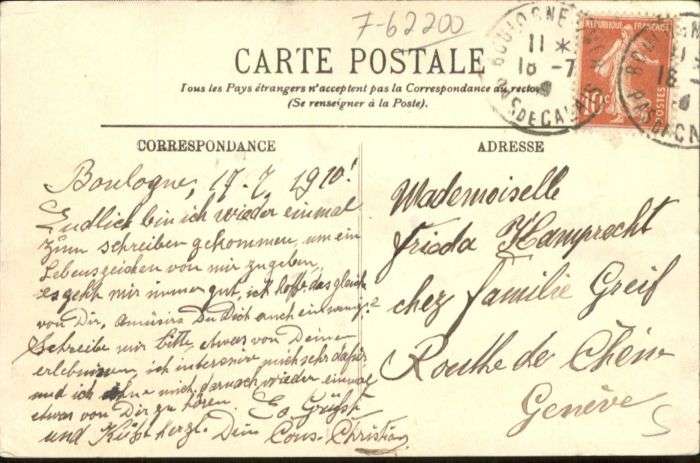 7-62200
CARTE POSTALE
Tous les Pays étrangers n'acceptent pas la Correspondance au recto
(Se renseigner à la Poste).
CORRESPONDANCE
ADRESSE
Boulogne, 17-7. 1910!
Endlich bin ich wieder einmal
zum schreiben gekommen, um ein
Lebenszeichen von mir zu geben,
es geht mir immer gut, ich hoffe das gleich
von Dir, amüsirs Du Dich auch ein wenig?
Schreibe mir bitte, etwas von Deinen
erlebnissen, ich interesire mich sehr dafür
und ich sehne mich darnach wieder einmal
etwas von Dir zu hören. Es Grüsst
und Küsst herzl. Dein Cous. Christian
Mademoiselle
Frieda Hamprecht
chez Familie Greif
Routhe de Chên
Genève
BOULOGNE
11 *
18 -7
PAS DE CALAIS
REPUBLIQUE FRANÇAISE
10c
POSTES
BOULOGNE
18
PAS DE CALAIS